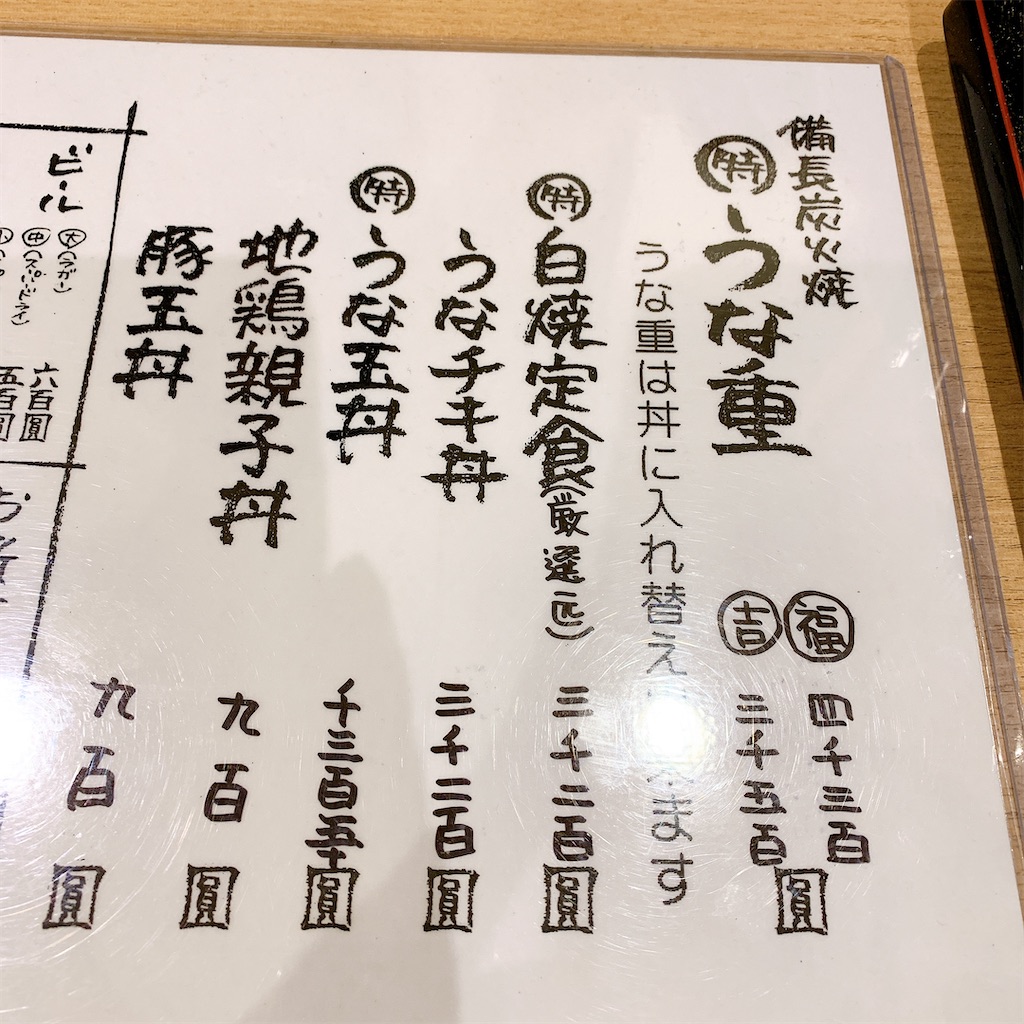 備長炭火焼
特 うな重
福 四千三百
吉 三千五百
圓
うな重は丼に入れ替え
ます
特 白焼定食(厳選匹) 三千二百圓
うなチキ丼 三千二百圓
特 うな玉丼 千三百五十圓
地鶏親子丼 九百圓
豚玉丼 九百圓
ビール
大(ラガー) 六百圓
中(スーパードライ) 五百圓